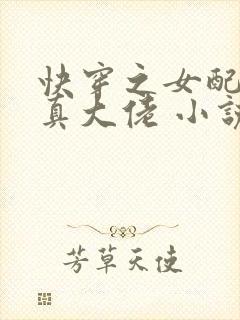 快穿之女配
真大佬 小说
芳草天使